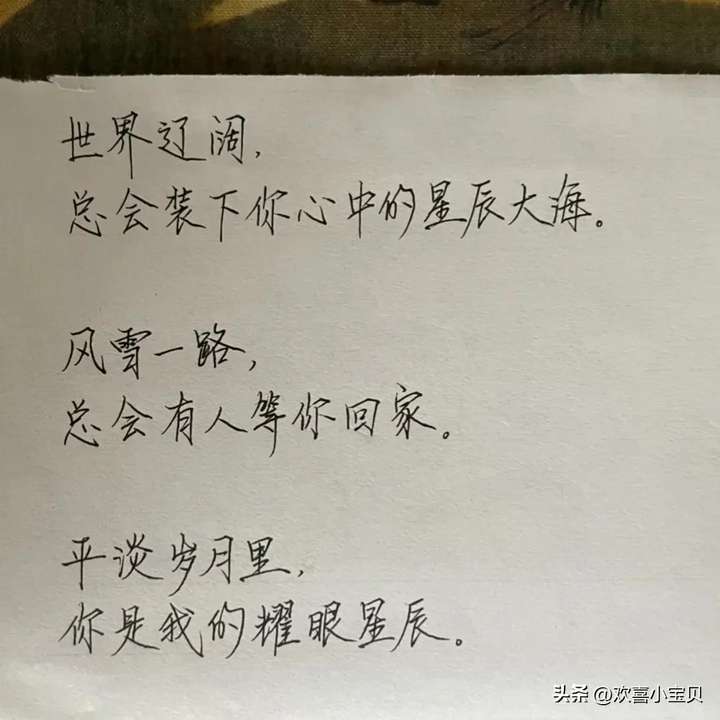 世界辽阔,
总会装下你心中的星辰大海。
风雪一路,
总会有人等你回家。
平淡岁月里,
你是我的耀眼星辰。
头条 @欢喜小宝贝